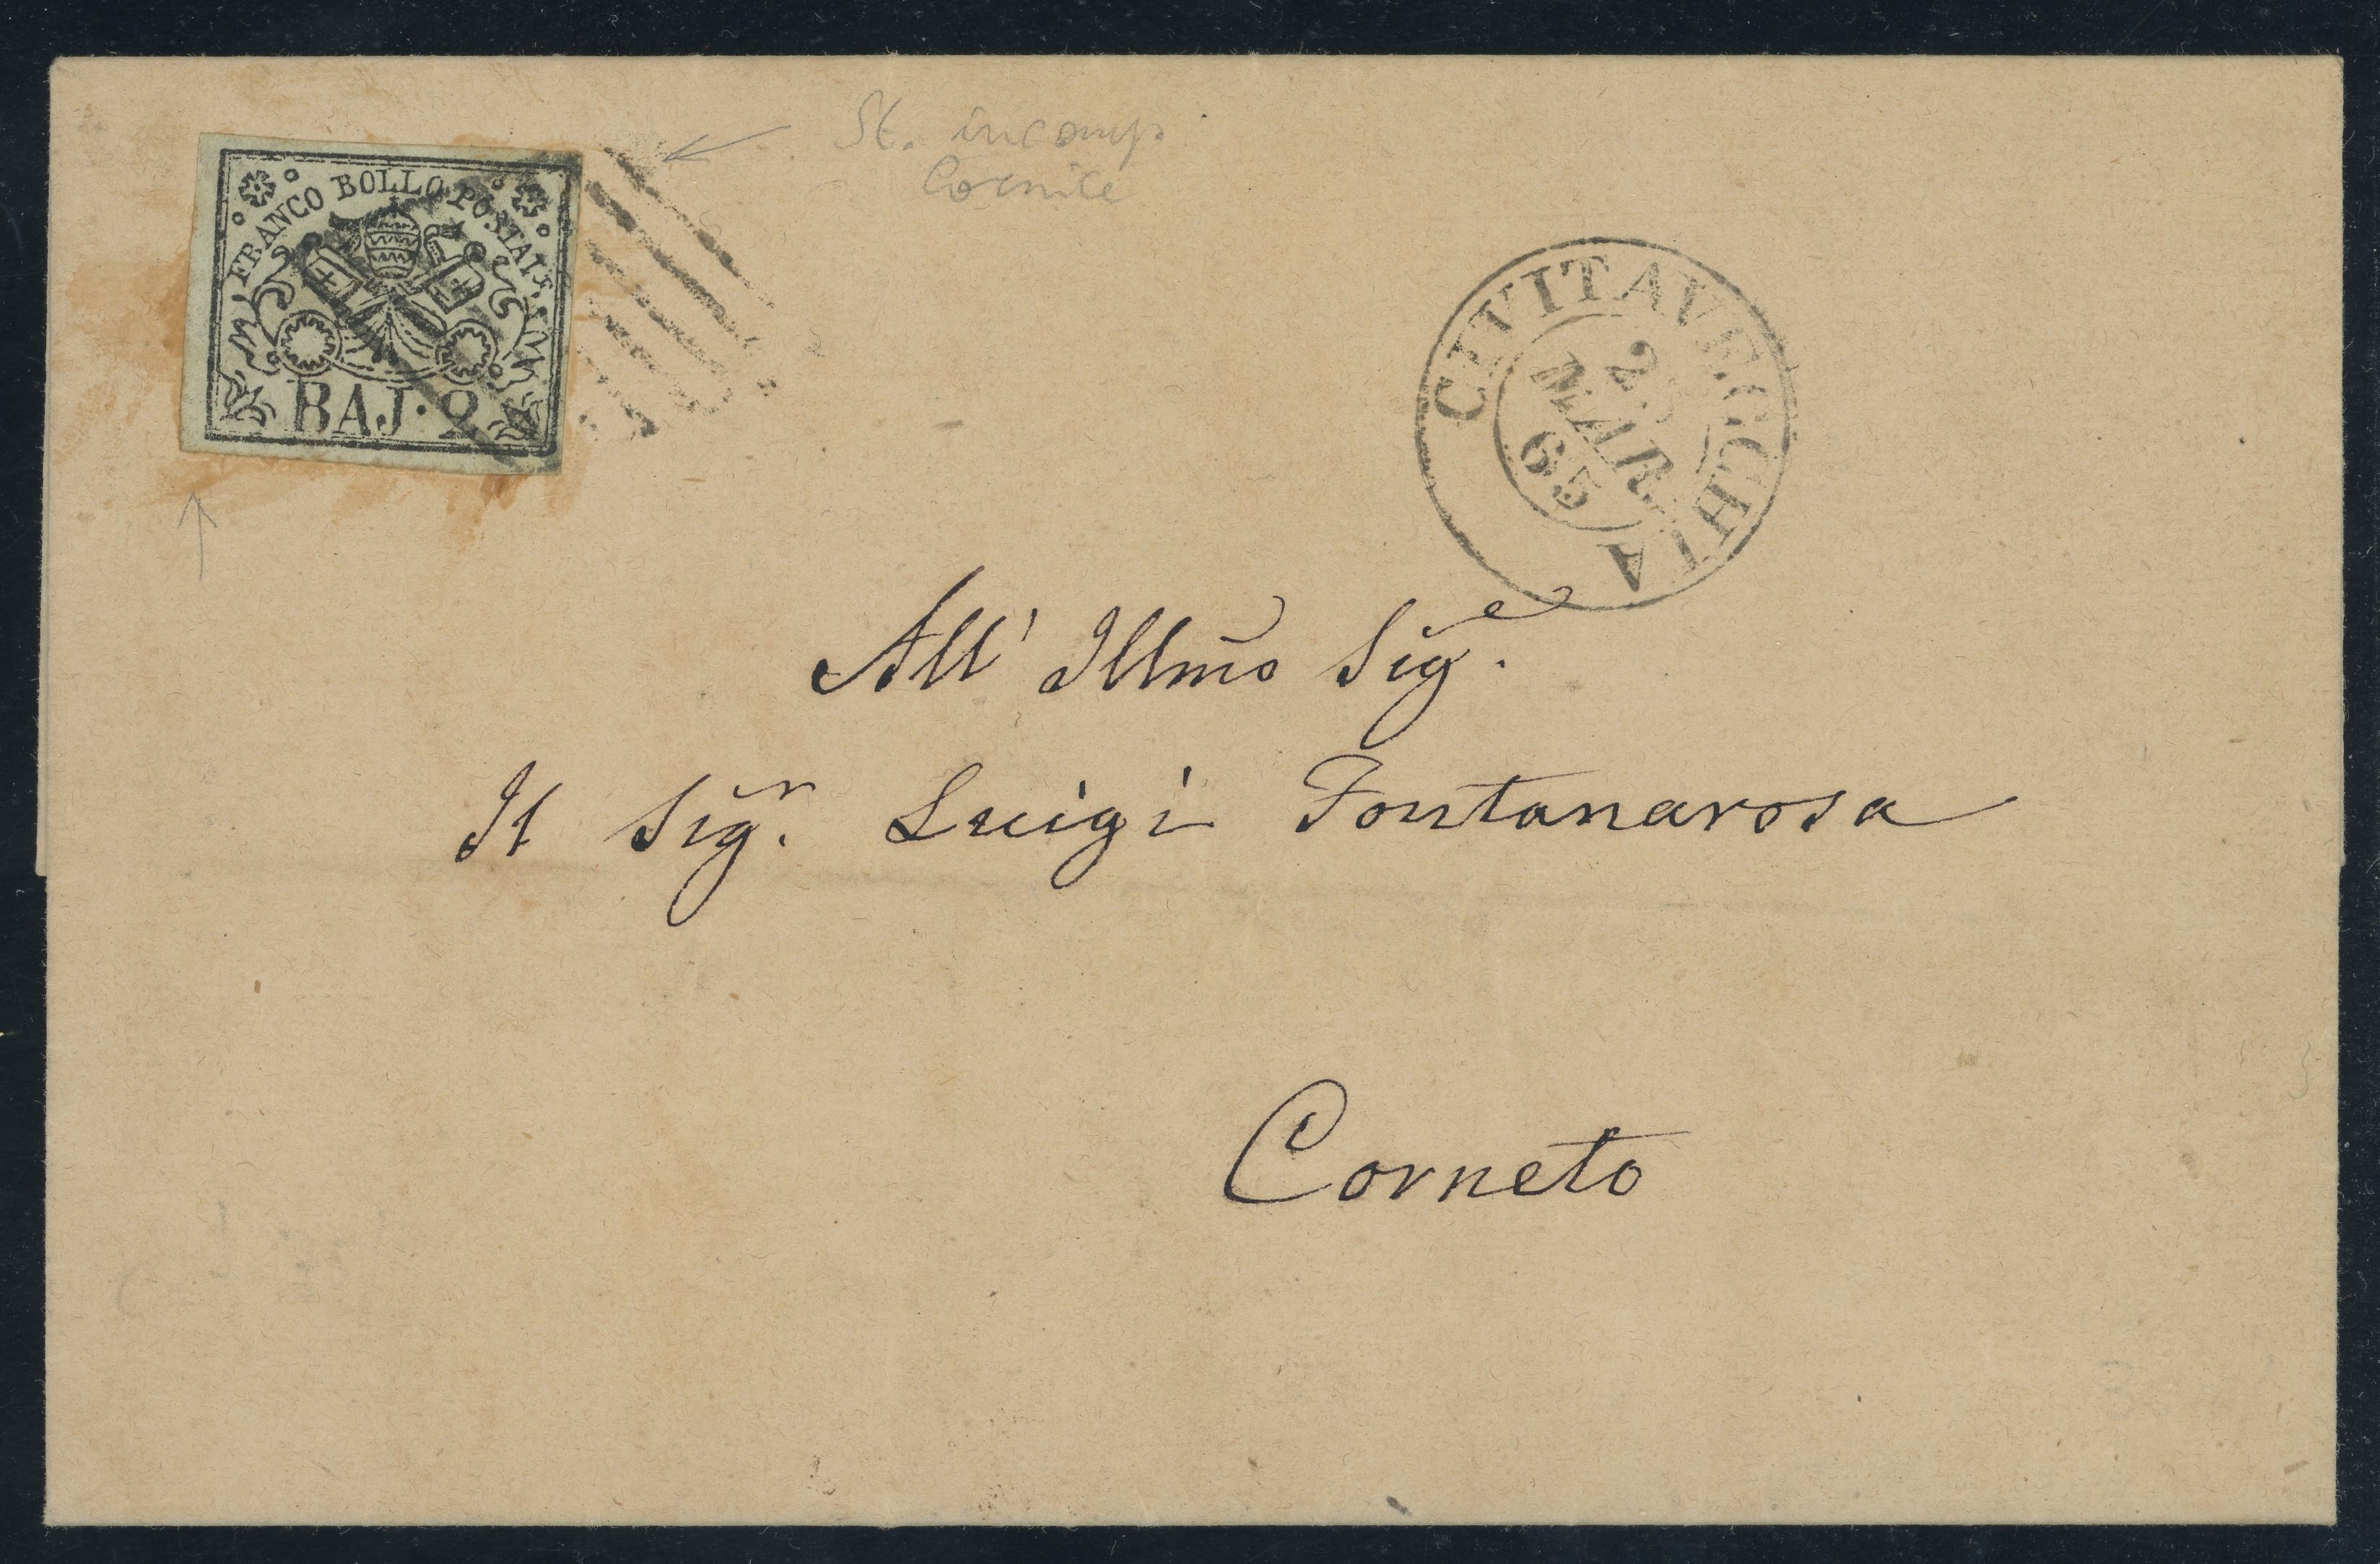 St. incomp.
Cornice
FRANCO BOLLO POSTALE
BAJ·2
CIVITAVECCHIA
MAR.
65
All' Illmo Sige.
Il Sigr. Luigi Fontanarosa
Corneto